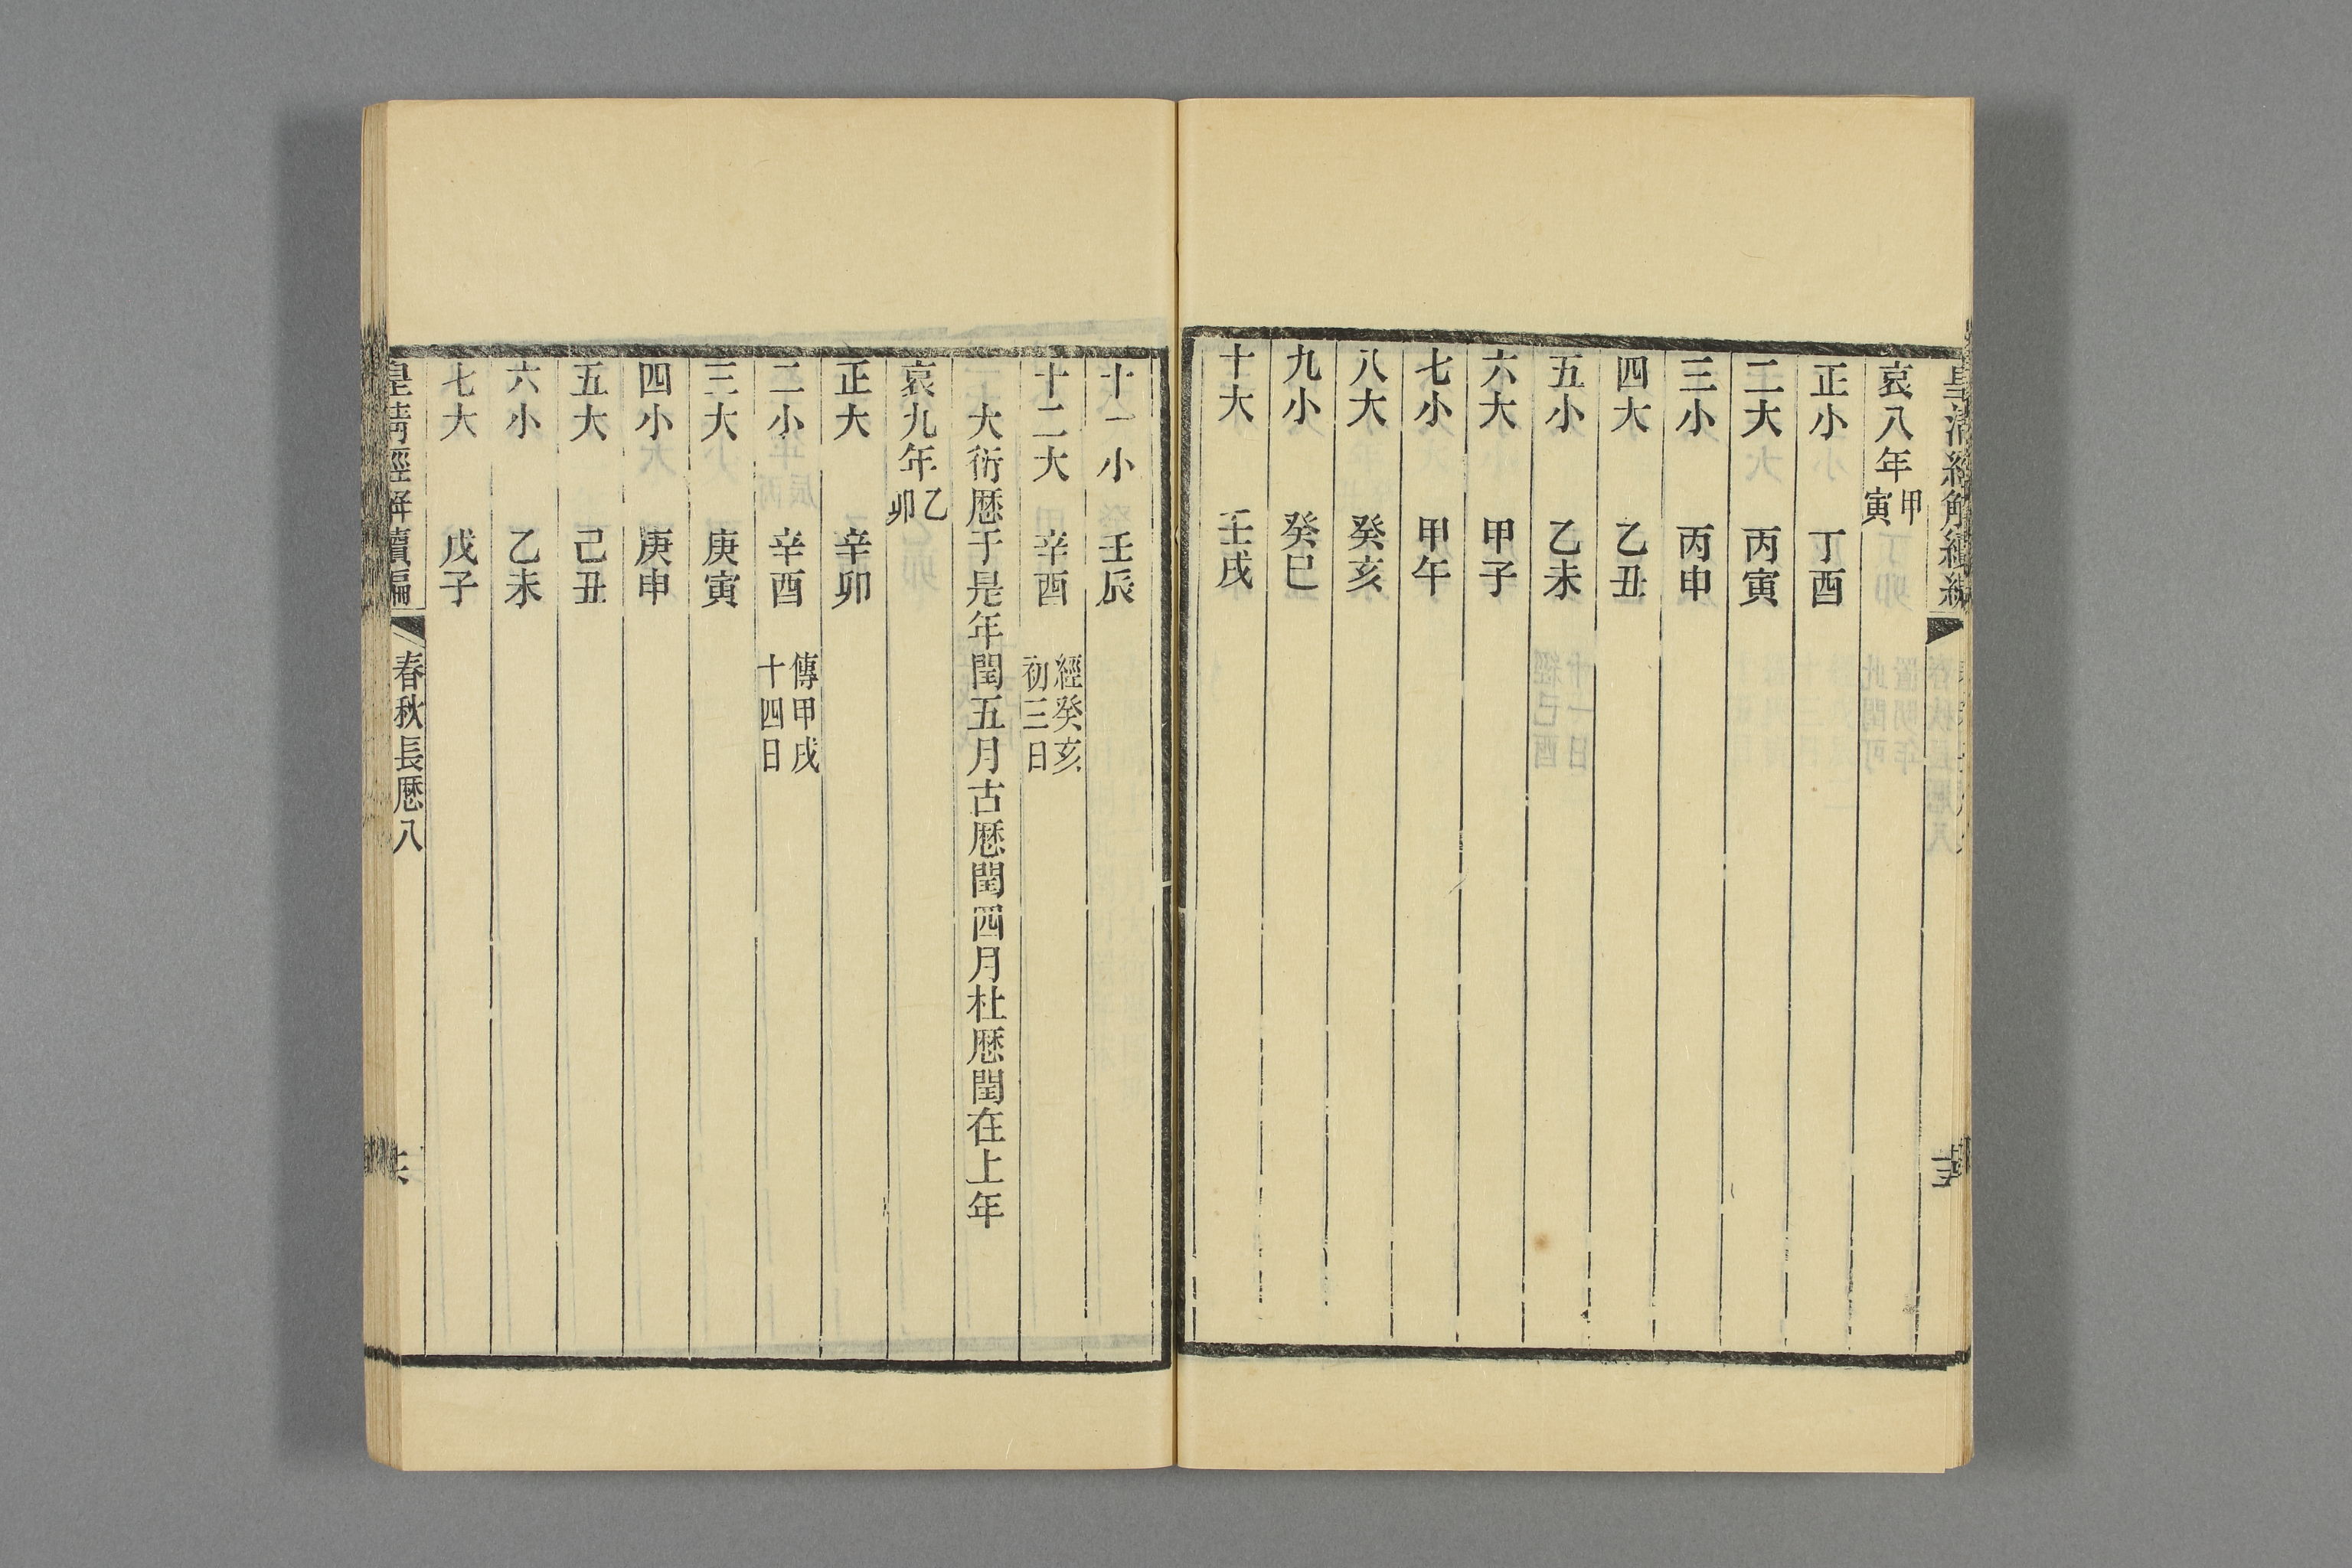 皇清經解續編
哀八年甲寅
正小 丁酉
二大 丙寅
三小 丙申
四大 乙丑
五小 乙未
六大 甲子
七小 甲午
八大 癸亥
九小 癸巳
十大 壬戌
十一小 壬辰
十二大 辛酉 經癸亥初三日
大衍厯于是年閏五月古厯閏四月杜厯閏在上年
哀九年乙卯
正大 辛卯
二小 辛酉 傳甲戌十四日
三大 庚寅
四小 庚申
五大 己丑
六小 乙未
七大 戊子
皇清經解續編 春秋長厯八